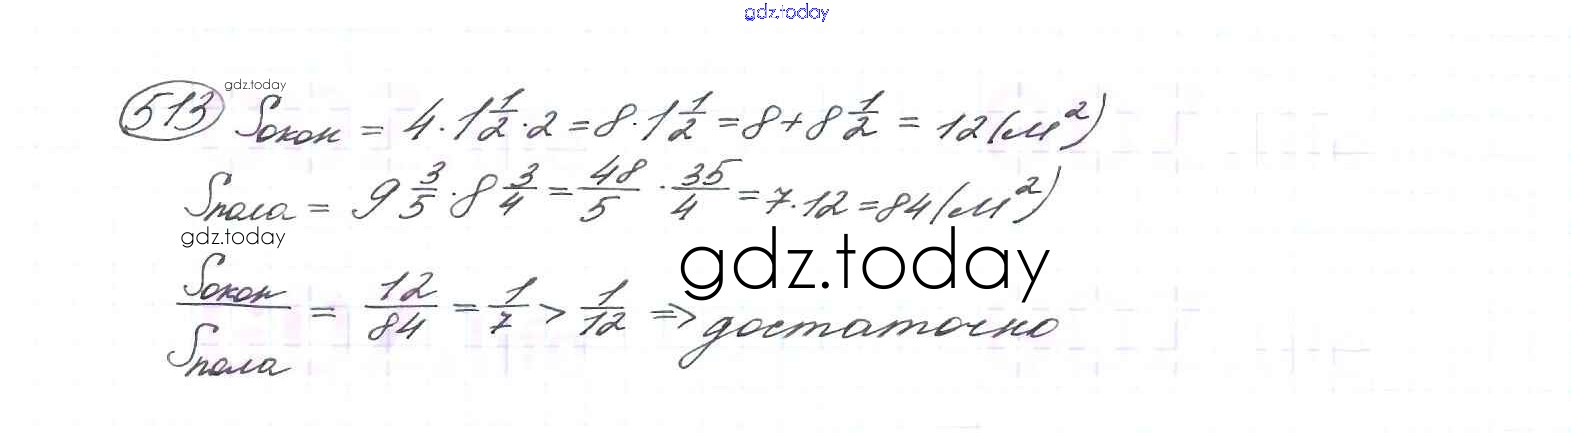 gdz.today
gdz.today
513 Sокон = 4 · 1 1/2 · 2 = 8 · 1 1/2 = 8 + 8 1/2 = 12 (м²)
Sпола = 9 3/5 · 8 3/4 = 48/5 · 35/4 = 7 · 12 = 84 (м²)
gdz.today
gdz.today
Sокон/Sпола = 12/84 = 1/7 > 1/12 => достаточно